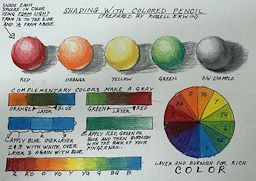 SHADING WITH COLORED PENCIL
(PREPARED BY RUSSELL ERWIN)
SHADE EACH
SPHERE IN COLOR
USING
LIGHT
FROM
TO THE
AND
ABOVE.
RED
ORANGE
YELLOW
GREEN
B/W EXAMPLE
COMPLEMENTARY COLORS MAKE A GRAY
ORANGE
LAYER
BLUE
GREEN
LAYER
RED
APPLY BLUE. OVERLAY
WITH WHITE. OVER
LAYER AGAIN WITH BLUE.
APPLY RED, GREEN OR
BLUE AND THEN BURNISH
WITH THE BACK OF YOUR
FINGERNAIL.
R RO O YO Y YG G BG B
LAYER AND BURNISH FOR RICH
COLOR